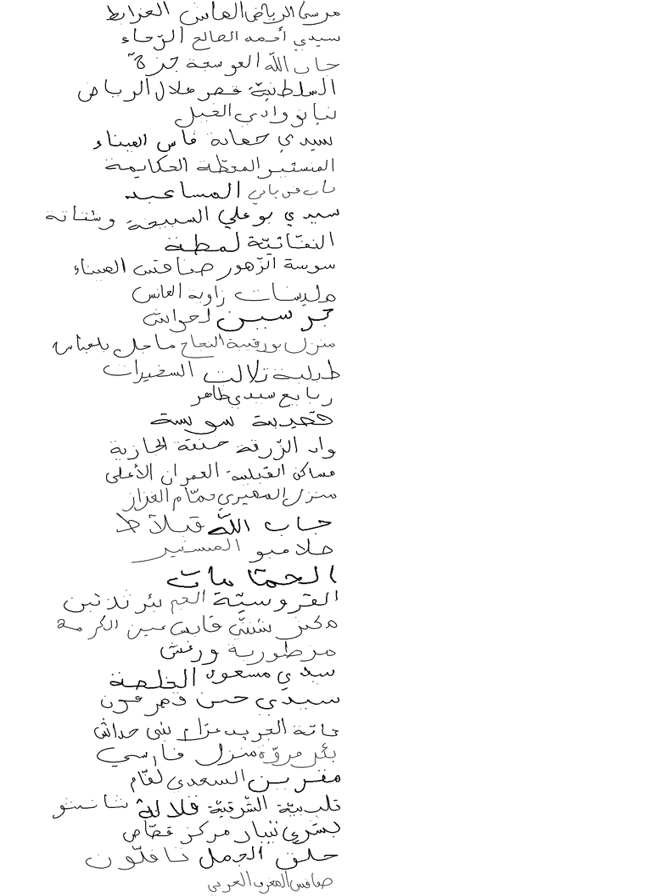 مرسى الرياض الماس الغرابط
سيدي أحمد الصالح الرّحاء
جاب الله العوسجة جزة
السلطنيّة قصر هلال الرياض
نيانو وادي الغيل
سيدي حمادة فاس الميناء
المنستير المحطّة الحكايمة
باب في باني المساعيد
سيدي بوعلي السبيعة وشتاتة
النفاتيّة لمطة
سوسة الزهور صفاقس الميناء
زاوية العانس
جرسين لحواش
منزل بورقيبة النجاح ساحل بلعباس
طبلبة تلالت السفيرات
ربايع سيدي ظاهر
قصيبة سويسة
واد الزّرقة خنقة الجازية
مساكن القبلية العمران الأعلى
منزل المهيري حمّام الغزاز
جاب الله قبلاط
صلامبو المنستير
الحمّامات
القروسيّة العم بئر ذنبن
مكثر شنني قابس عين الكرمة
مرطورية ورغش
سيدي مسعود الخلصة
سيدي حسن قصر عون
حانة الجريد بني حداش
بئر مروّة منزل فارسي
مقرين السعدي لقّام
قليبيّة الشرقيّة قلالة
يسري نيبار مركز قصّاص
حلق الجمل نافلّون
صفاقس المغرب العربي